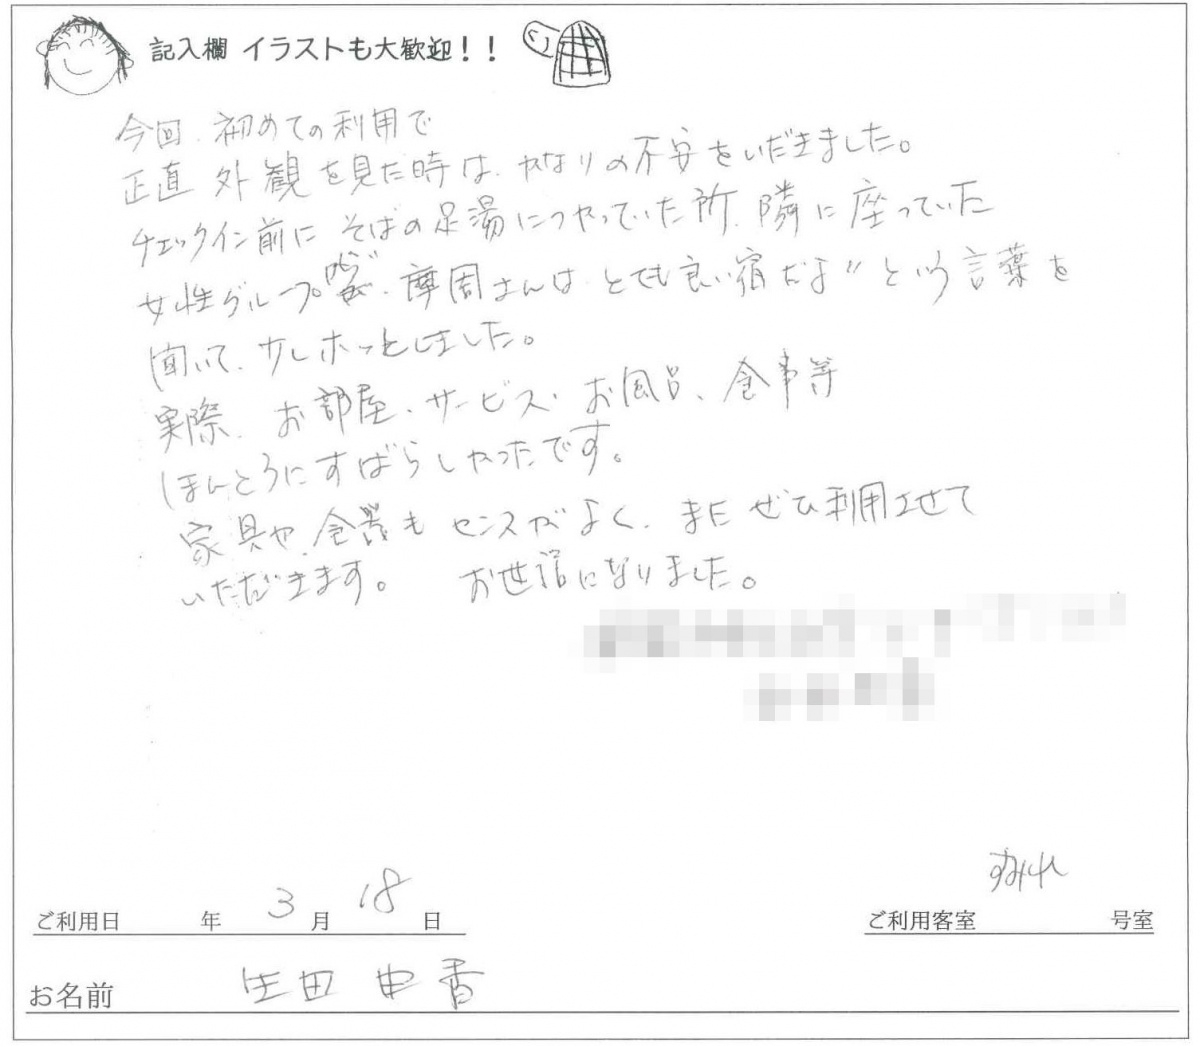 記入欄 イラストも大歓迎！！
今回、初めての利用で
正直 外観を見た時は、かなりの不安をいだきました。
チェックイン前に そばの足湯につかっていた所、隣に座っていた
女性グループが、摩周さんは、とても良い宿だよ〃という言葉を
聞いて、少しホッとしました。
実際、お部屋、サービス、お風呂、食事等
ほんとうにすばらしかったです。
家具や、食器も センスがよく、また ぜひ利用させて
いただきます。 お世話になりました。
すみれ
ご利用日 年 3 月 18 日 ご利用客室 号室
お名前 生田 由香